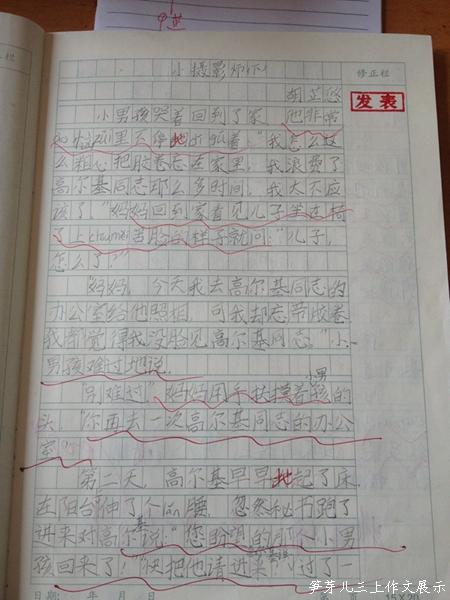 小摄影师
修正栏
胡芷悠
发表
小男孩哭着回到了家,他非常
里不停地,"我怎么这
么粗心把胶卷忘在家里,我浪费了
高尔基同志那么多时间,我太不应
该了。"妈妈回到家看见儿子坐在椅
了上chóuméi苦脸的样子就问:"儿子,
怎么了?"
"妈妈,今天我去高尔基同志的
办公室给他照相,可我却忘带胶卷
我都觉得我没脸见高尔基同志。"小
男孩难过地说。
"别难过。"妈妈用手抚摸着小男孩的
头,"你再去一次高尔基同志的办公
室。"
第二天,高尔基早早地起了床,
在阳台伸了个lǎn腰,忽然秘书跑了
进来对高尔基说:"您盼望的那个小男
孩回来了!""快把他请进来。"过了一
日期: 年 月 日
笋芽儿三上作文展示